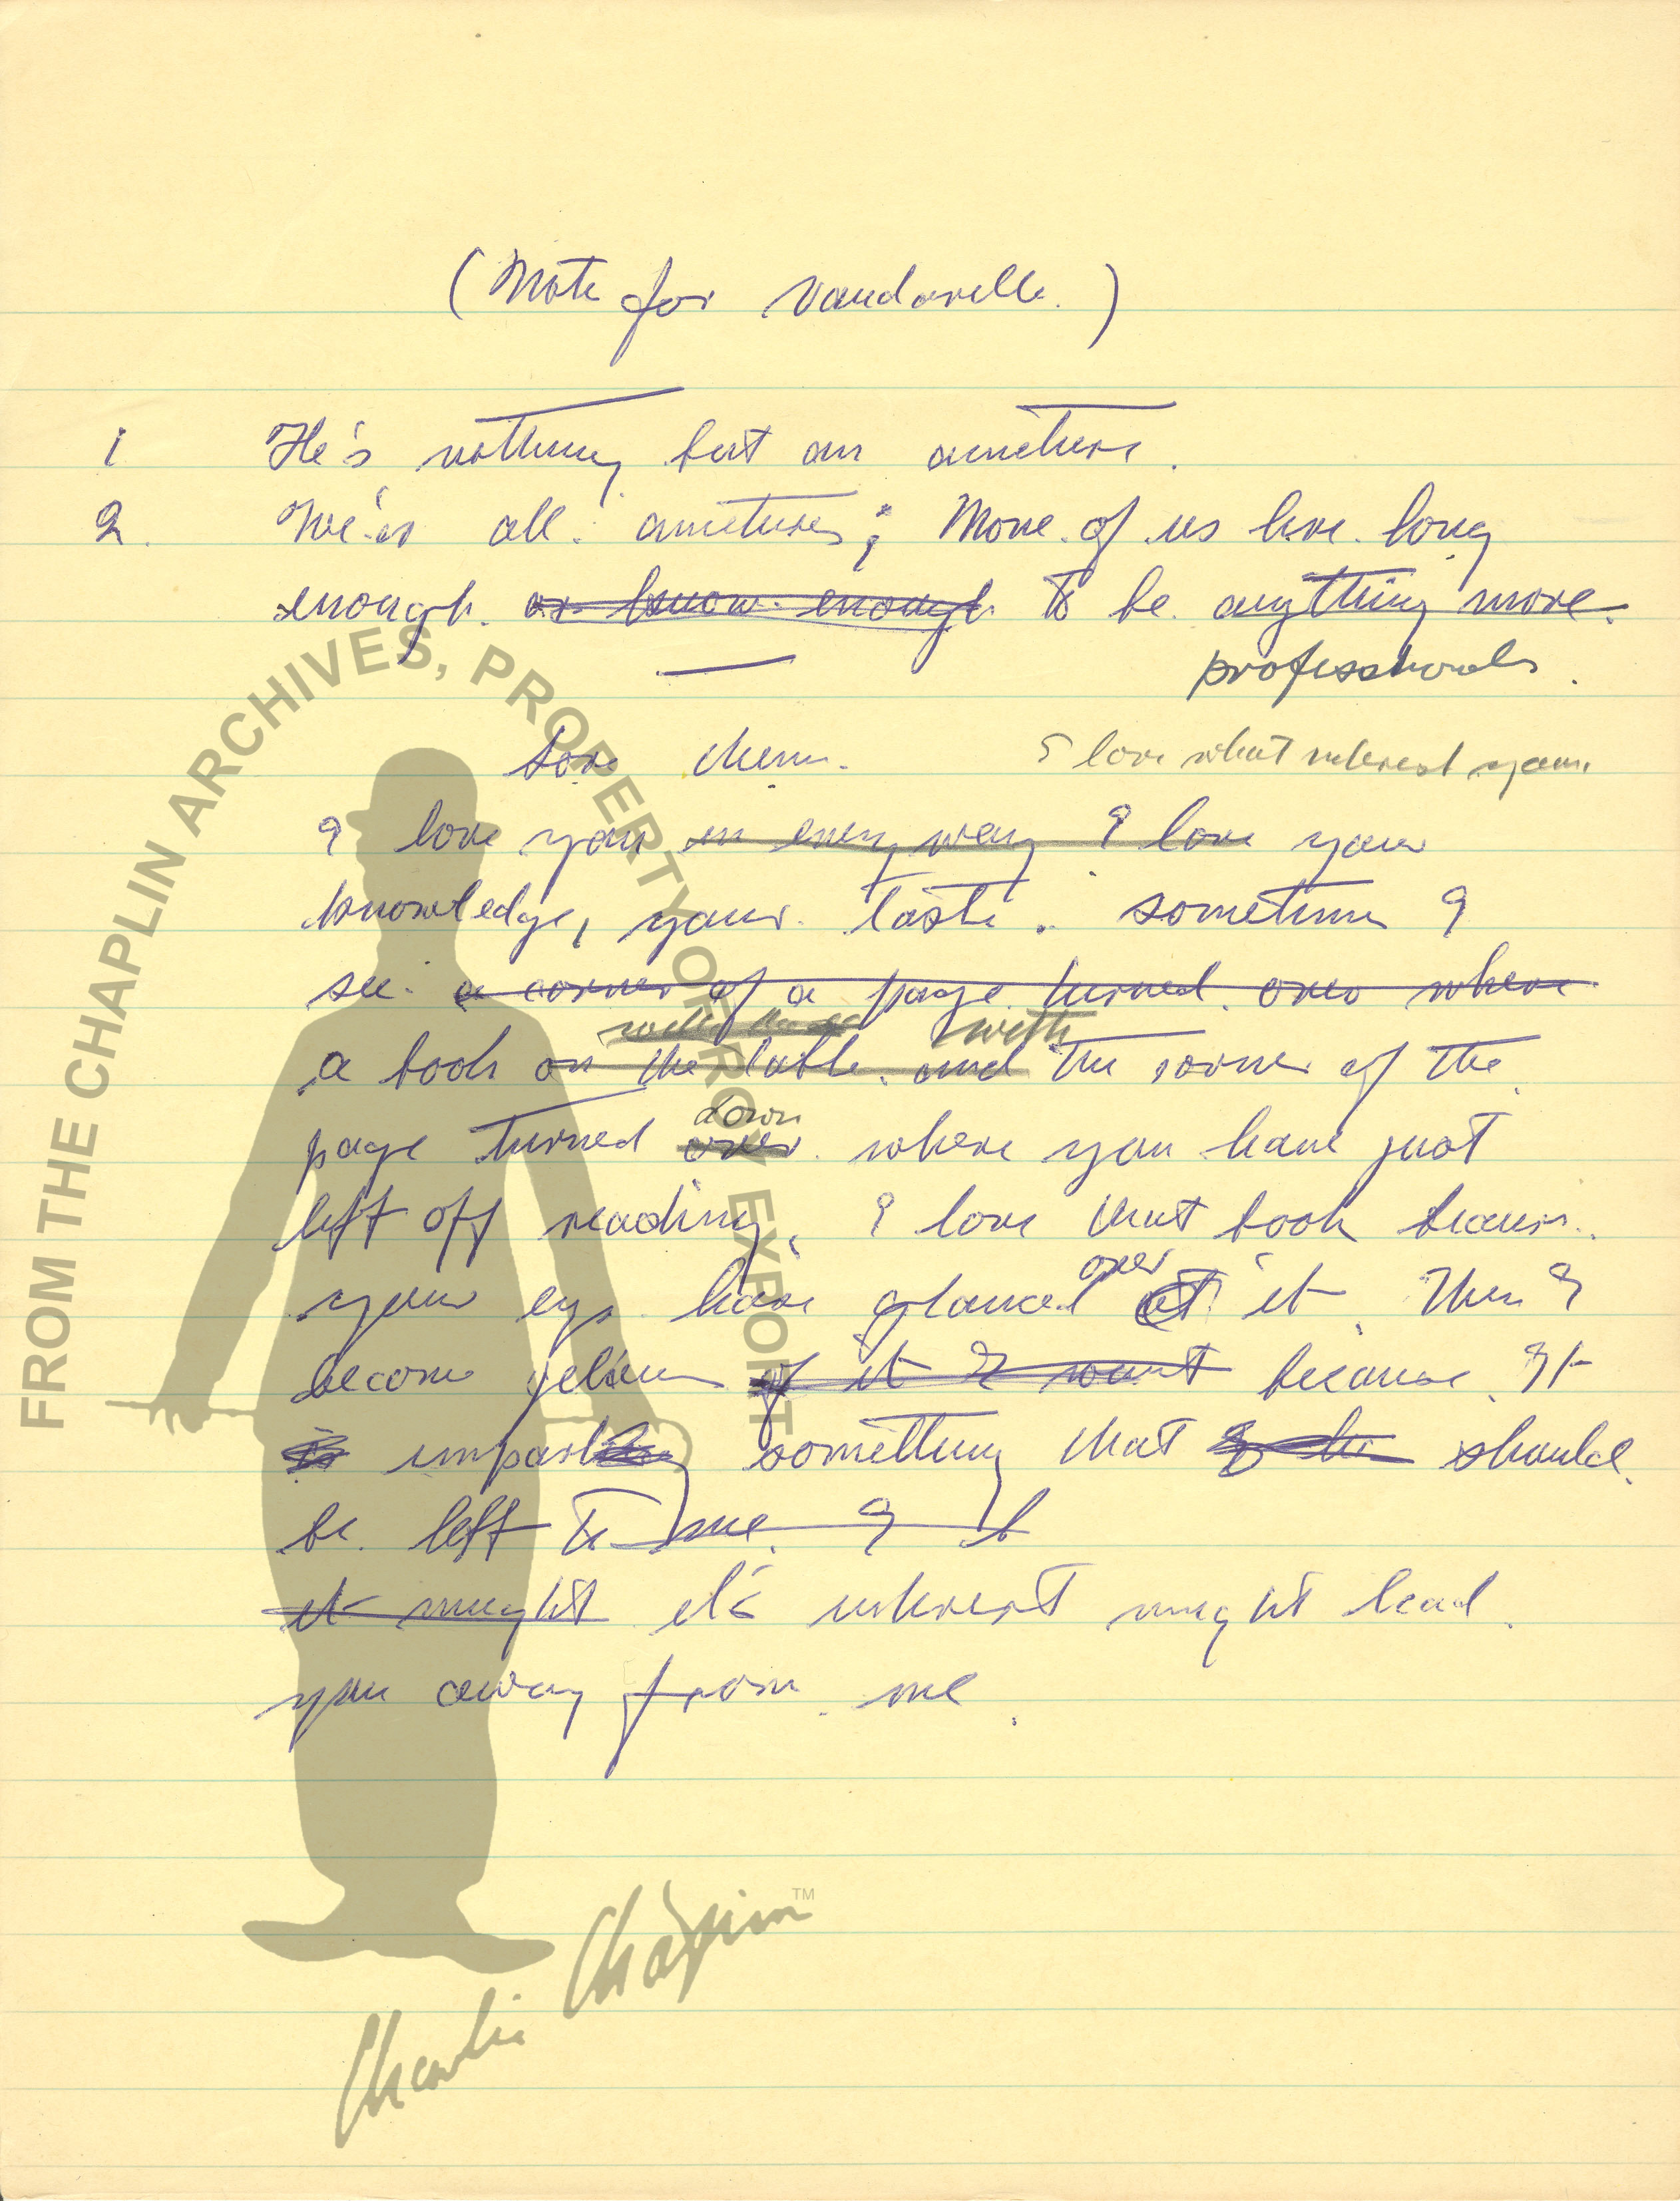 (Note for Vaudaville.)
1 He's nothing but an ameture.
2. We'er all ametures; None of us live long
enough or know enough to be anything more.
professionals.
Love theme.
I love what interest you
I love you in every way I love your
knowledge, your taste. sometime I
see a corner of a page turned over where
with
a book on the table and the corner of the
down
page turned over where you have just
left off reading, I love that book because
over
your eys have glanced at it. Then I
become jelous of it I want because It
is imparting something that should
be left to me. I
it might it's interest might lead
you away from me.
FROM THE CHAPLIN ARCHIVES, PROPERTY OF ROY EXPORT
Charlie Chaplin™